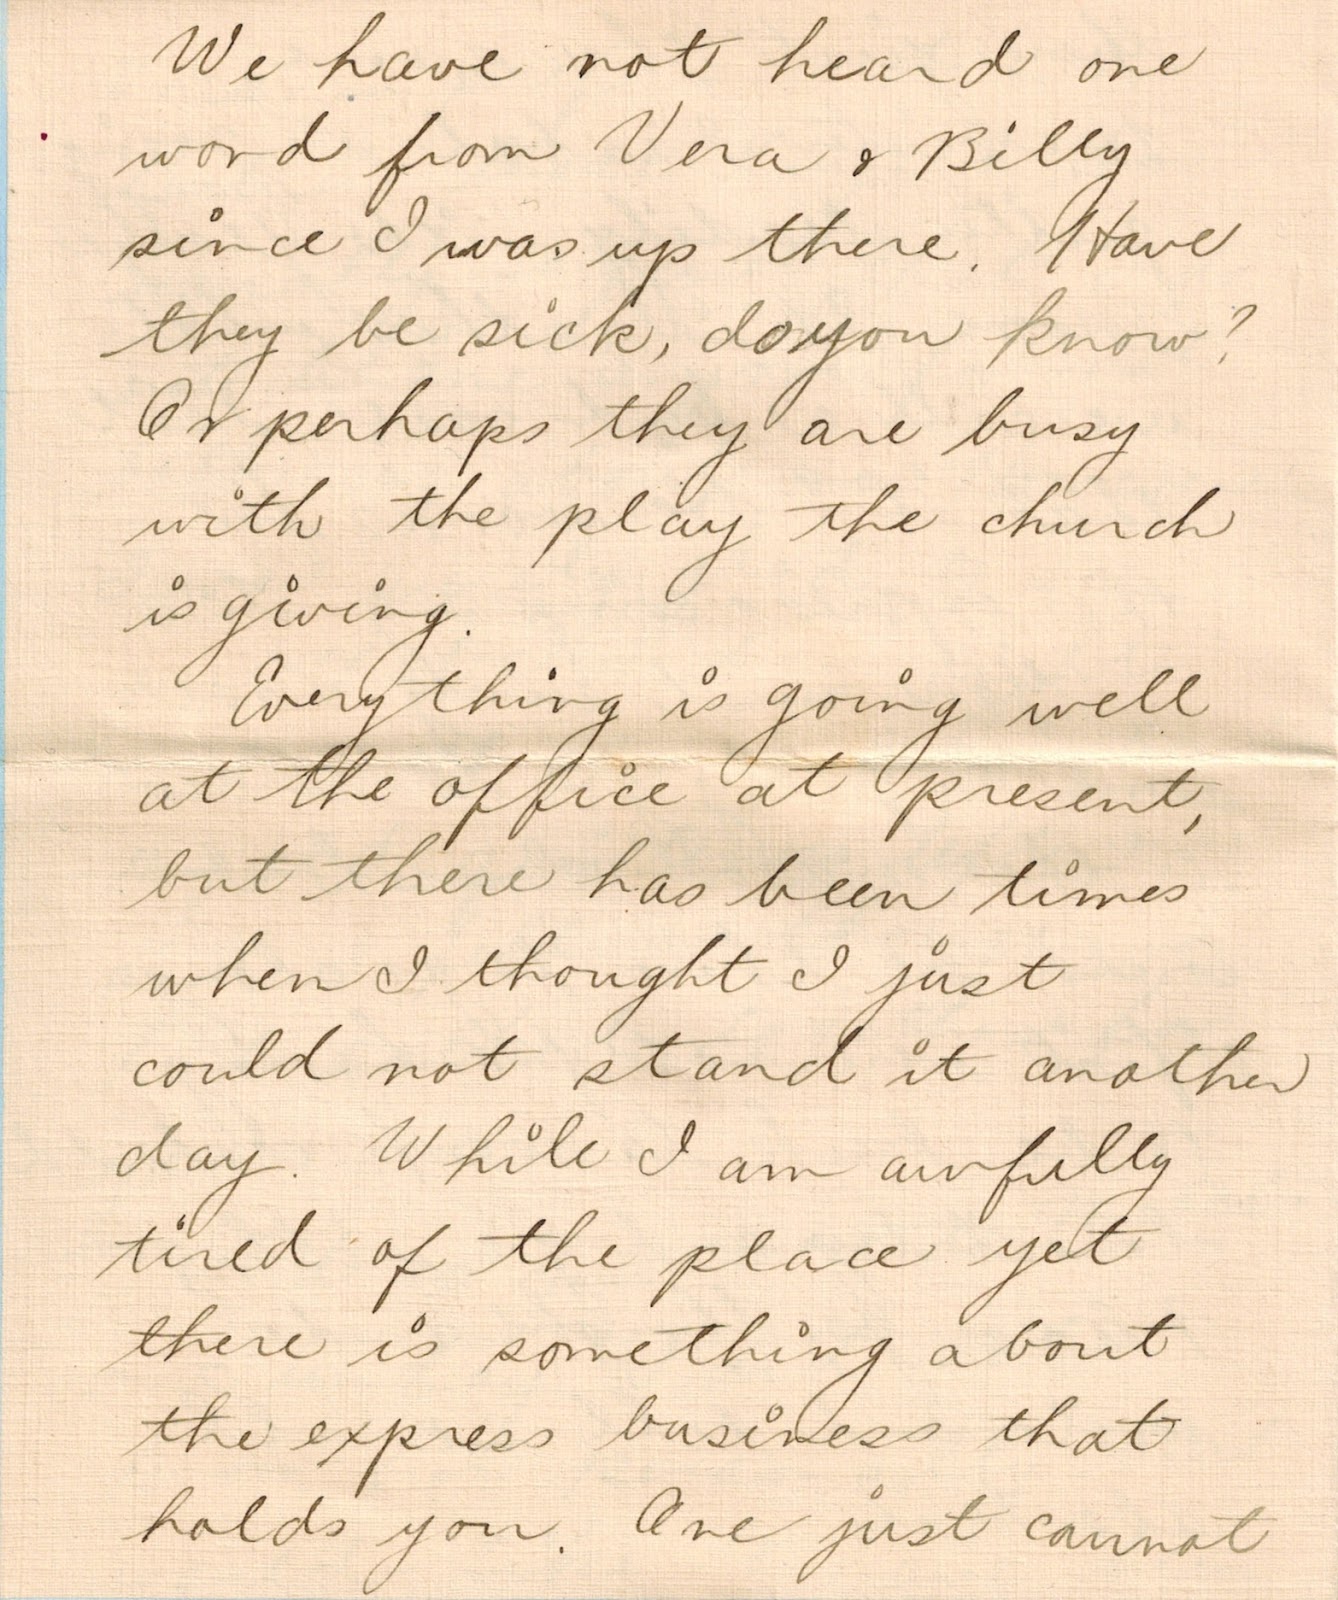 We have not heard one
word from Vera & Billy
since I was up there. Have
they be sick, do you know?
Or perhaps they are busy
with the play the church
is giving.
Everything is going well
at the office at present,
but there has been times
when I thought I just
could not stand it another
day. While I am awfully
tired of the place yet
there is something about
the express business that
holds you. One just cannot